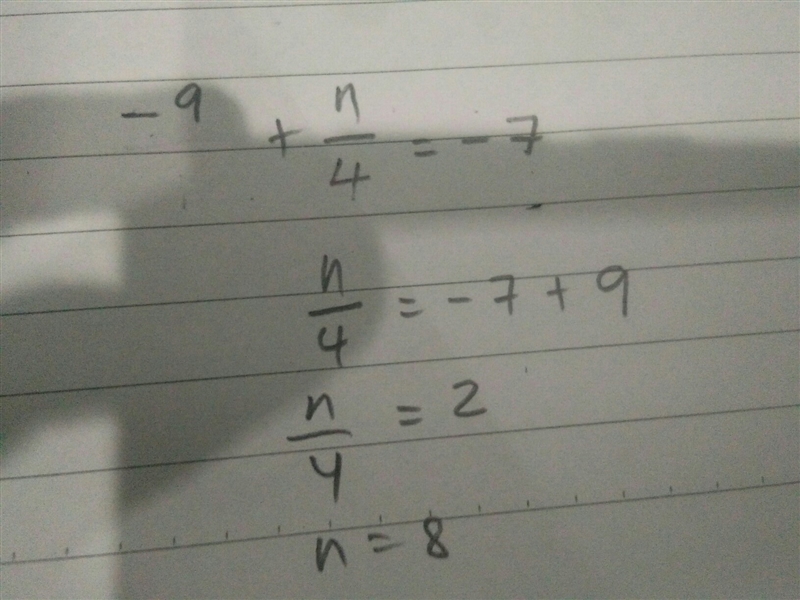 -9 + n/4 = -7
n/4 = -7 + 9
n/4 = 2
n = 8